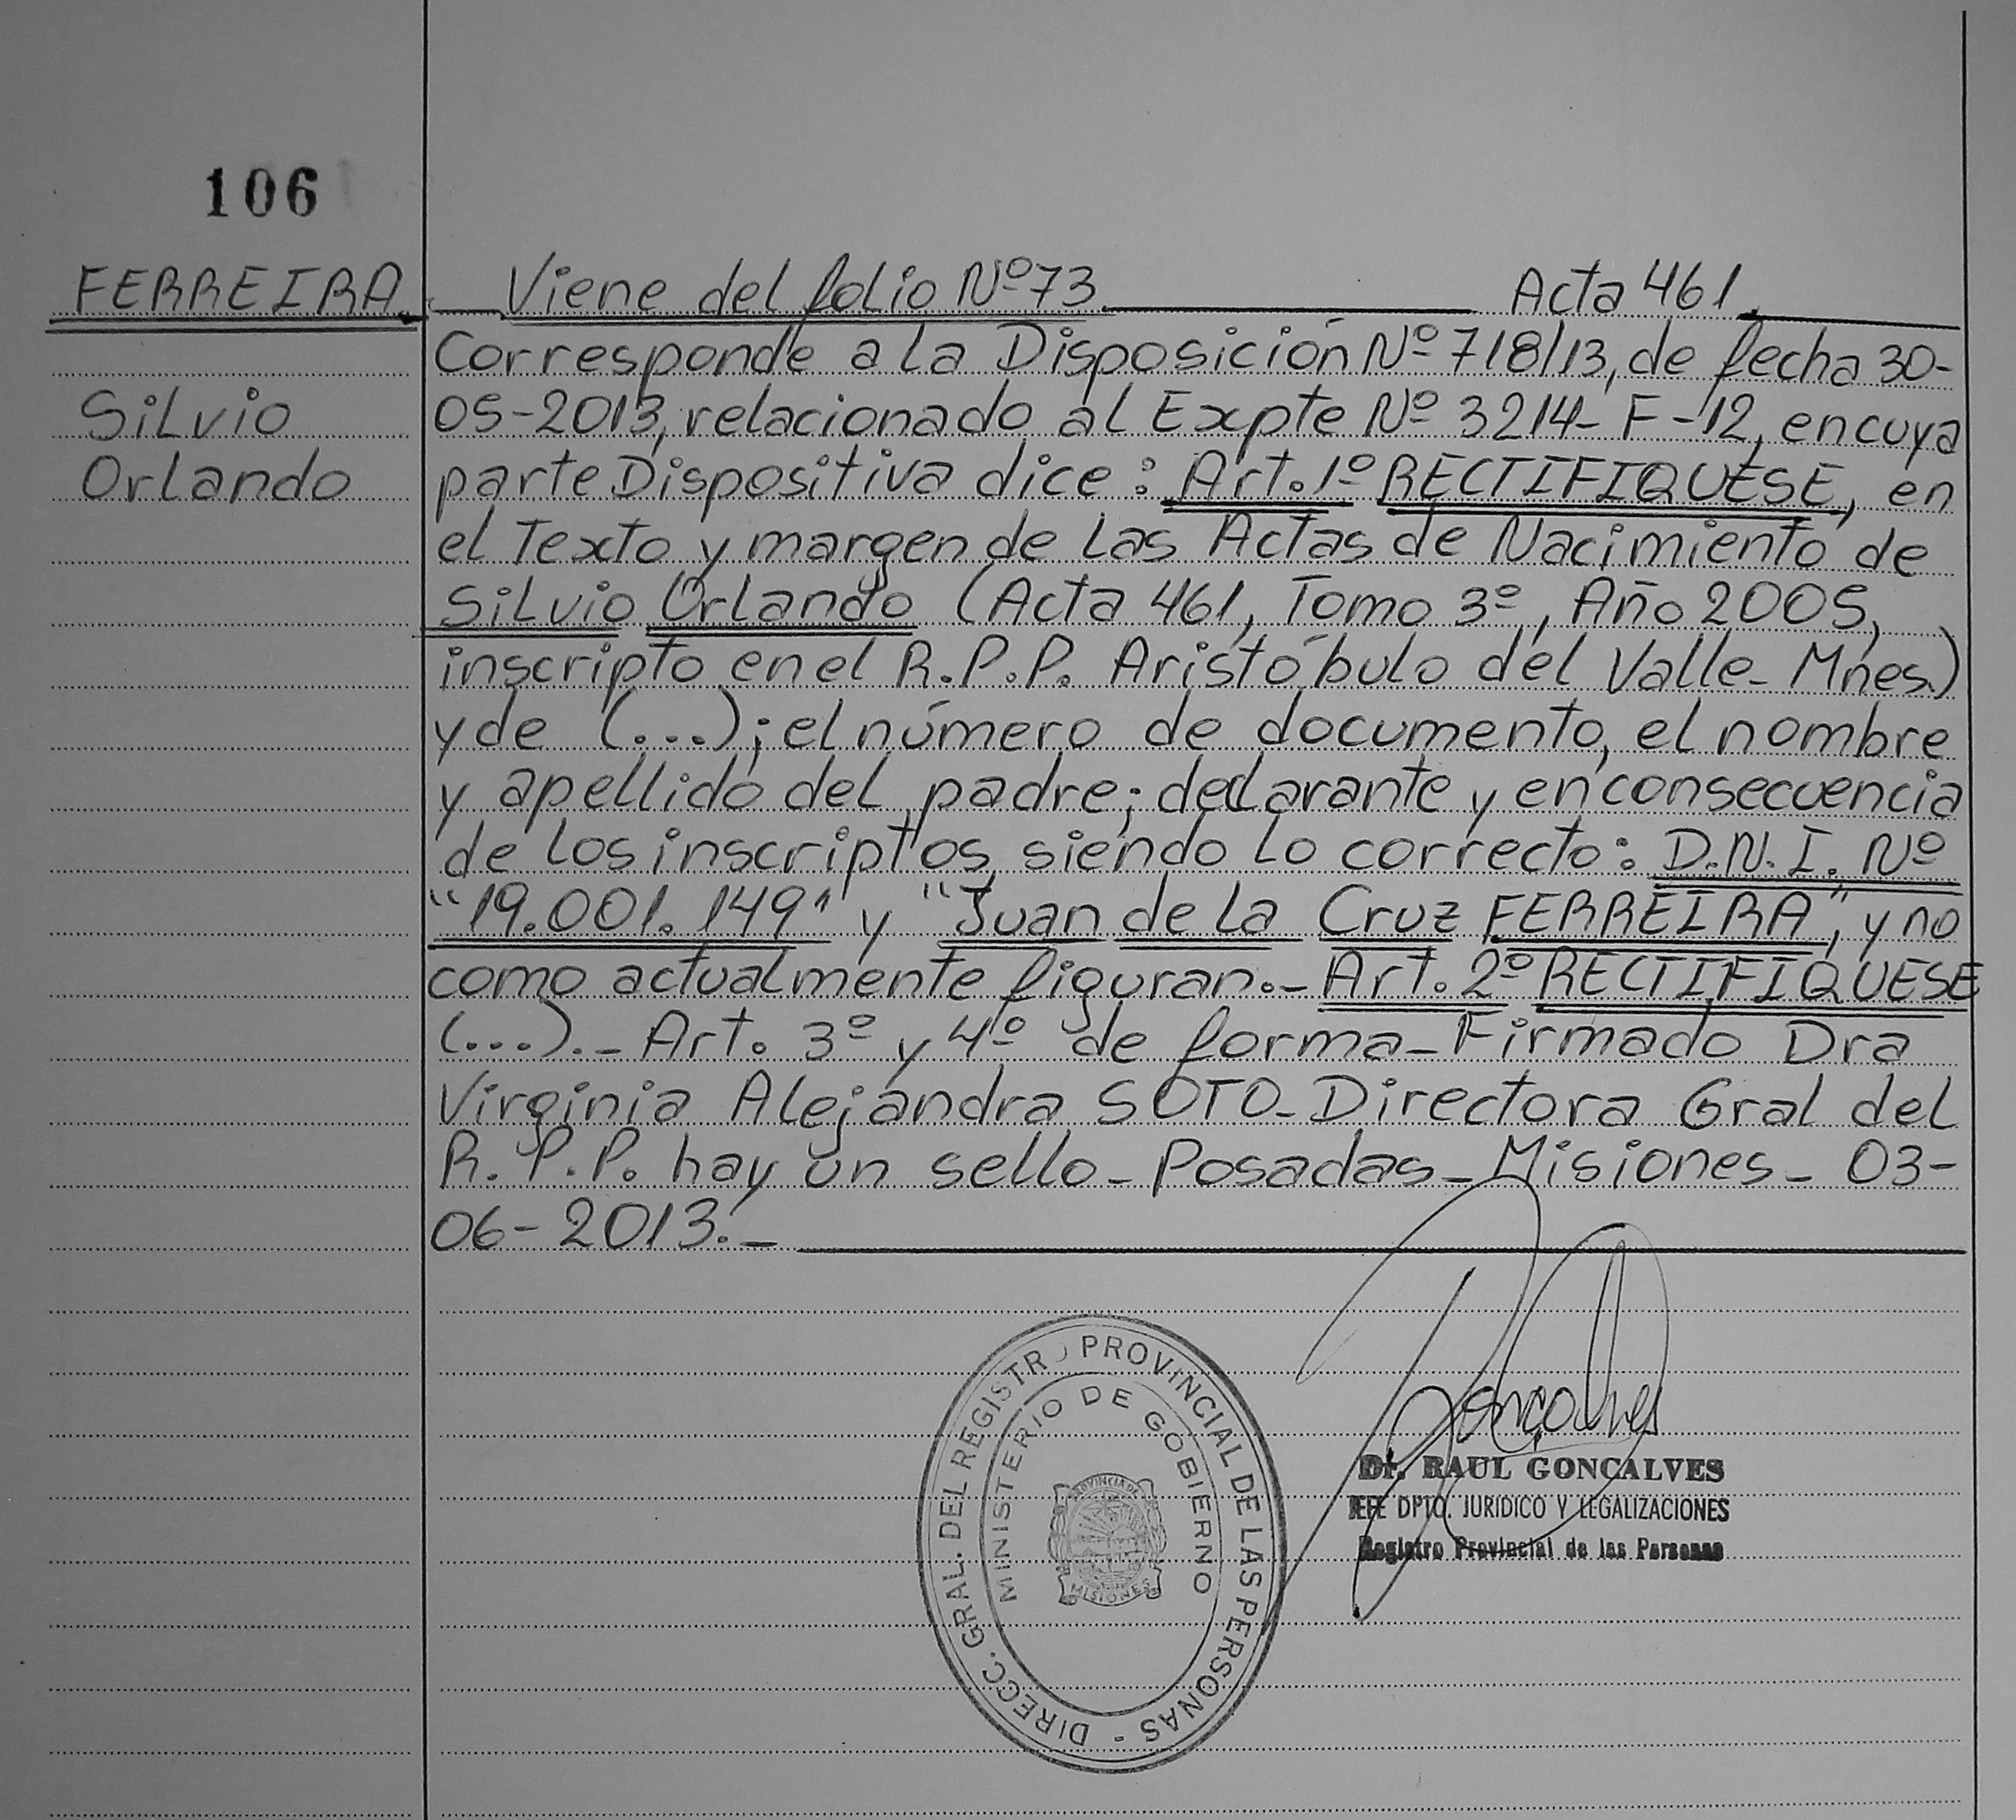 106
FERREIRA.
Silvio
Orlando
Viene del folio Nº 73. Acta 461.
Corresponde a la Disposición Nº 718/13, de fecha 30-
05-2013, relacionado al Expte Nº 3214- F -12, en cuya
parte Dispositiva dice: Art. 1º RECTIFIQUESE, en
el Texto y margen de las Actas de Nacimiento de
Silvio Orlando (Acta 461, Tomo 3º, Año 2005,
inscripto en el R.P.P. Aristóbulo del Valle- Mnes.)
y de (...); el número de documento, el nombre
y apellido del padre; declarante y en consecuencia
de los inscriptos, siendo lo correcto: D.N.I. Nº
"19.001.149" y "Juan de la Cruz FERREIRA", y no
como actualmente figuran.- Art. 2º RECTIFIQUESE
(...).- Art. 3º y 4º de forma- Firmado Dra
Virginia Alejandra SOTO- Directora Gral del
R.P.P. hay un sello- Posadas- Misiones- 03-
06-2013.-
DIRECC. GRAL. DEL REGISTRO PROVINCIAL DE LAS PERSONAS -
MINISTERIO DE GOBIERNO
PROVINCIA DE
MISIONES
Goncalves
Dr. RAUL GONCALVES
JEFE DPTO. JURIDICO Y LEGALIZACIONES
Registro Provincial de las Personas